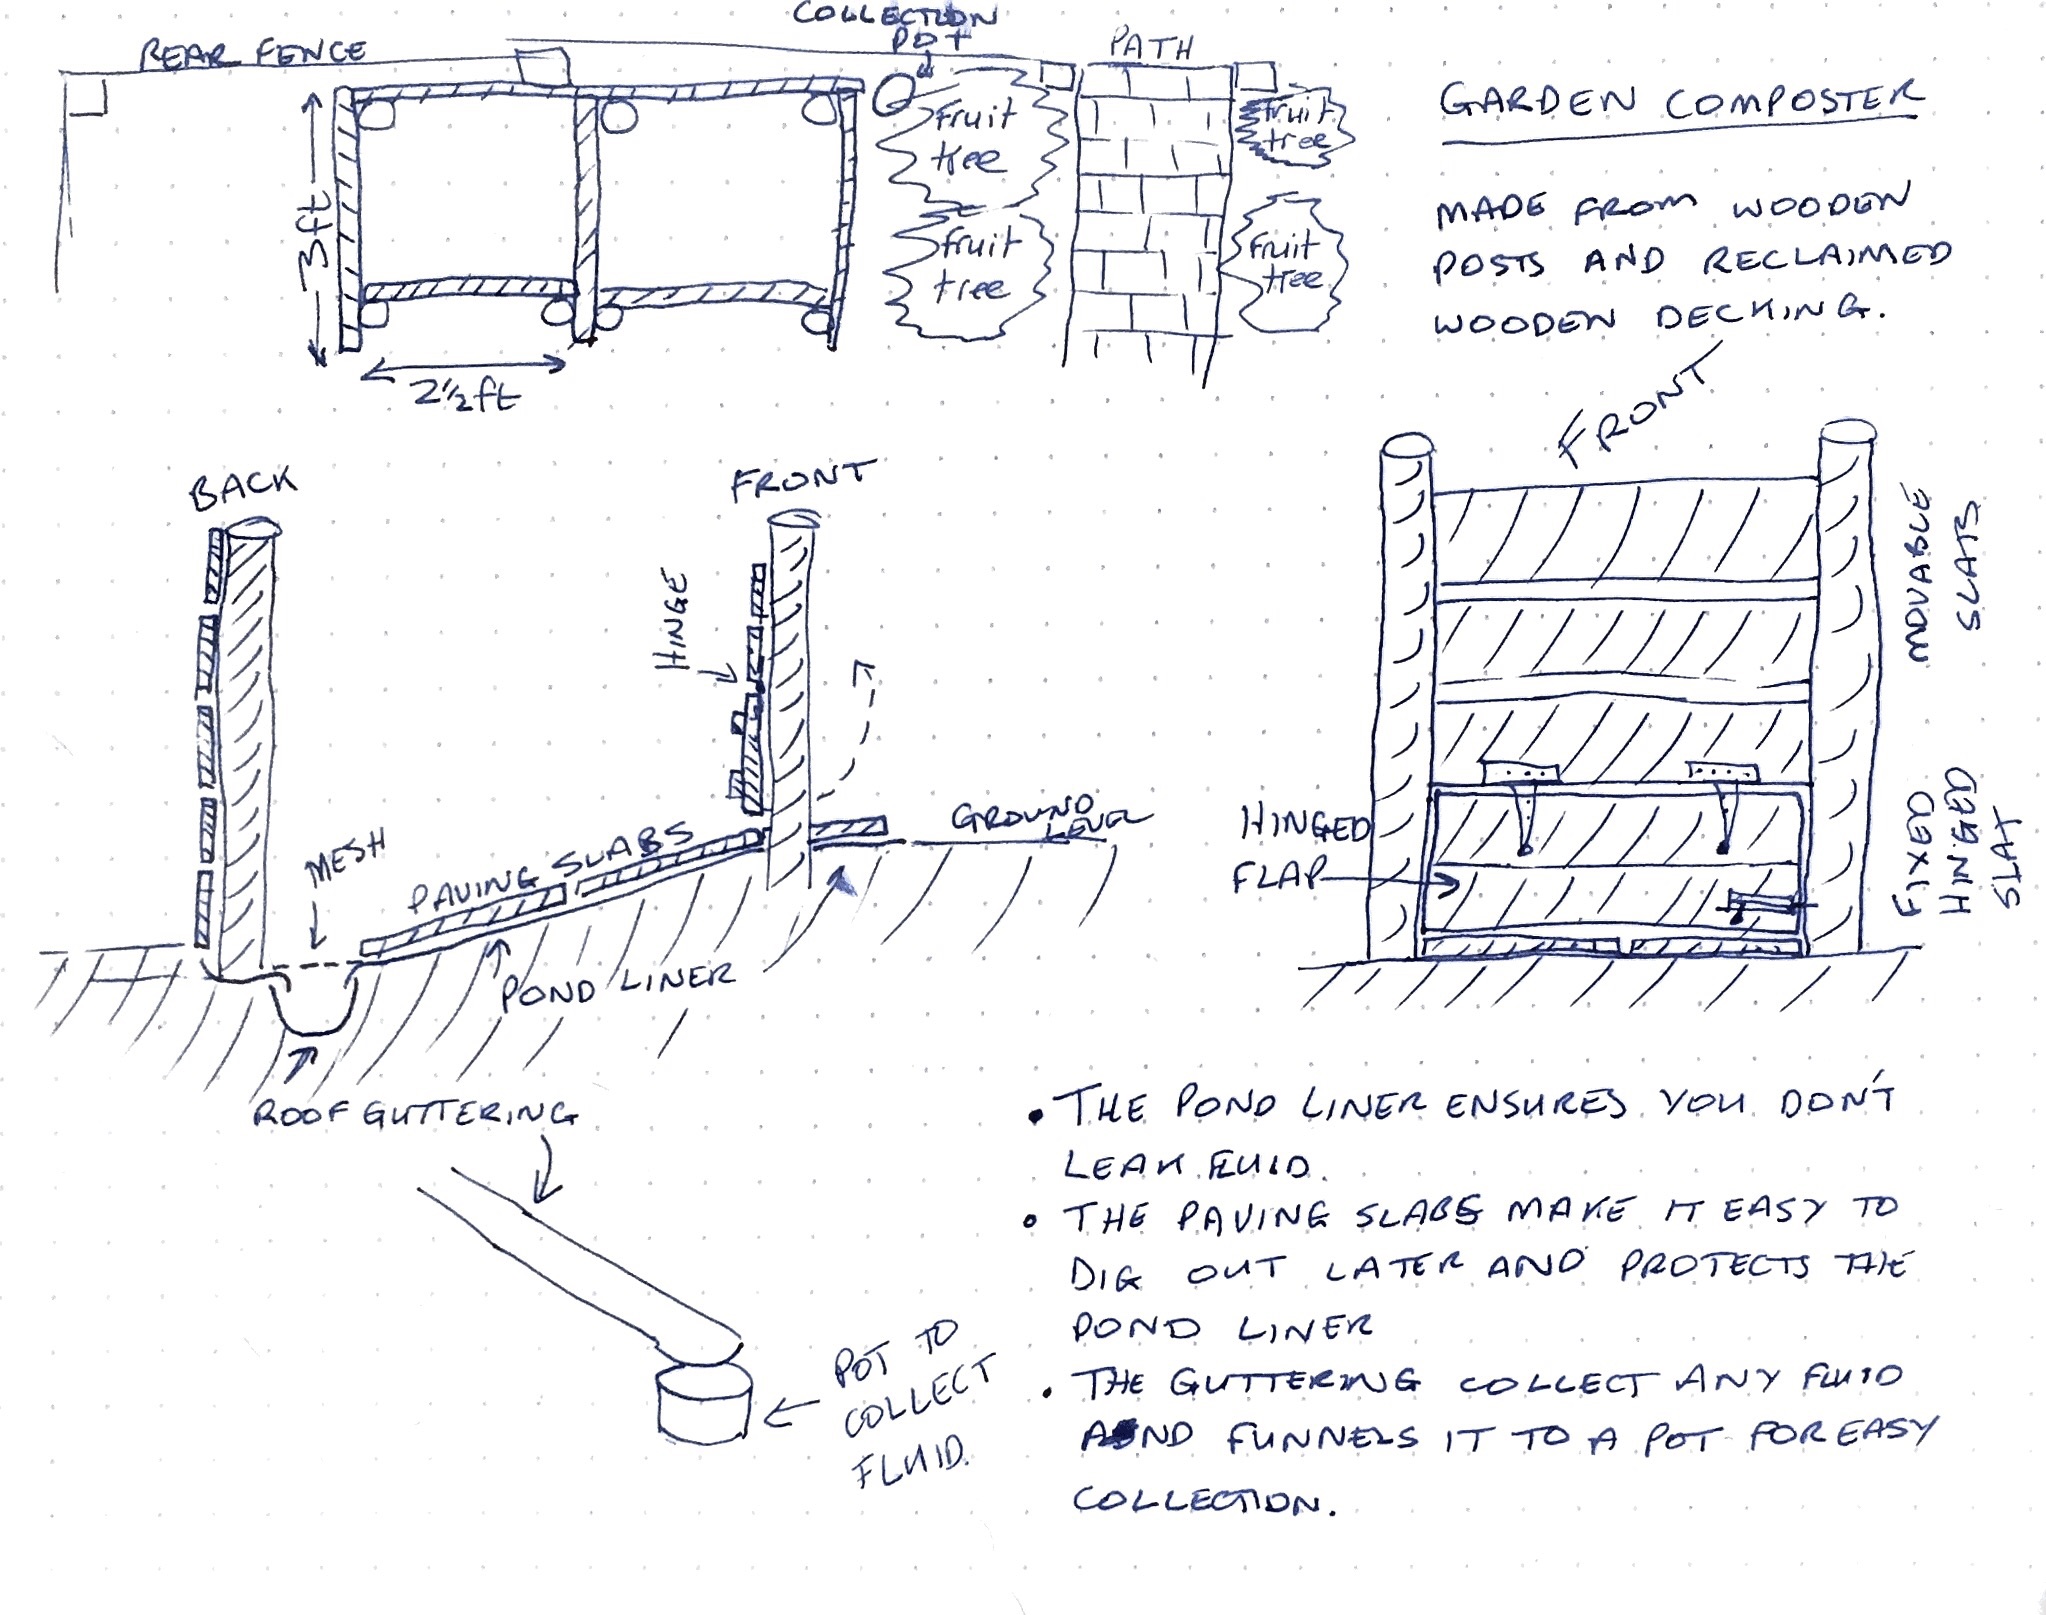 COLLECTION
POT
REAR FENCE
PATH
fruit
tree
fruit
tree
fruit
tree
fruit
tree
3ft
2½ft
GARDEN COMPOSTER
MADE FROM WOODEN
POSTS AND RECLAIMED
WOODEN DECKING.
BACK
FRONT
HINGE
MESH
PAVING SLABS
POND LINER
GROUND
LEVEL
ROOF GUTTERING
POT TO
COLLECT
FLUID.
FRONT
MOVABLE
SLATS
HINGED
FLAP
FIXED
HINGED
SLAT
• THE POND LINER ENSURES YOU DON'T
LEAK FLUID.
• THE PAVING SLABS MAKE IT EASY TO
DIG OUT LATER AND PROTECTS THE
POND LINER
• THE GUTTERING COLLECT ANY FLUID
AND FUNNELS IT TO A POT FOR EASY
COLLECTION.